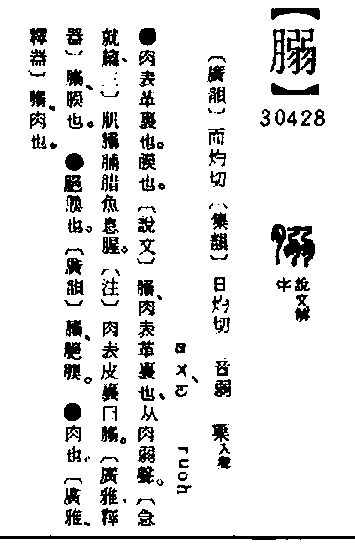 【腬】
30428
說文解字
〔廣韻〕而灼切〔集韻〕日灼切 音弱 藥入聲
ruoh
●肉表革裏也。膜也。〔說文〕膈、肉表革裏也、从肉弱聲。〔急
就篇、三〕肌膈脯腊魚臭腥。〔注〕肉表皮裏曰膈。〔廣雅、釋
器〕膈、膜也。●肥膜也。〔廣韻〕膈、肥膜。●肉也。〔廣雅、
釋器〕膈、肉也。